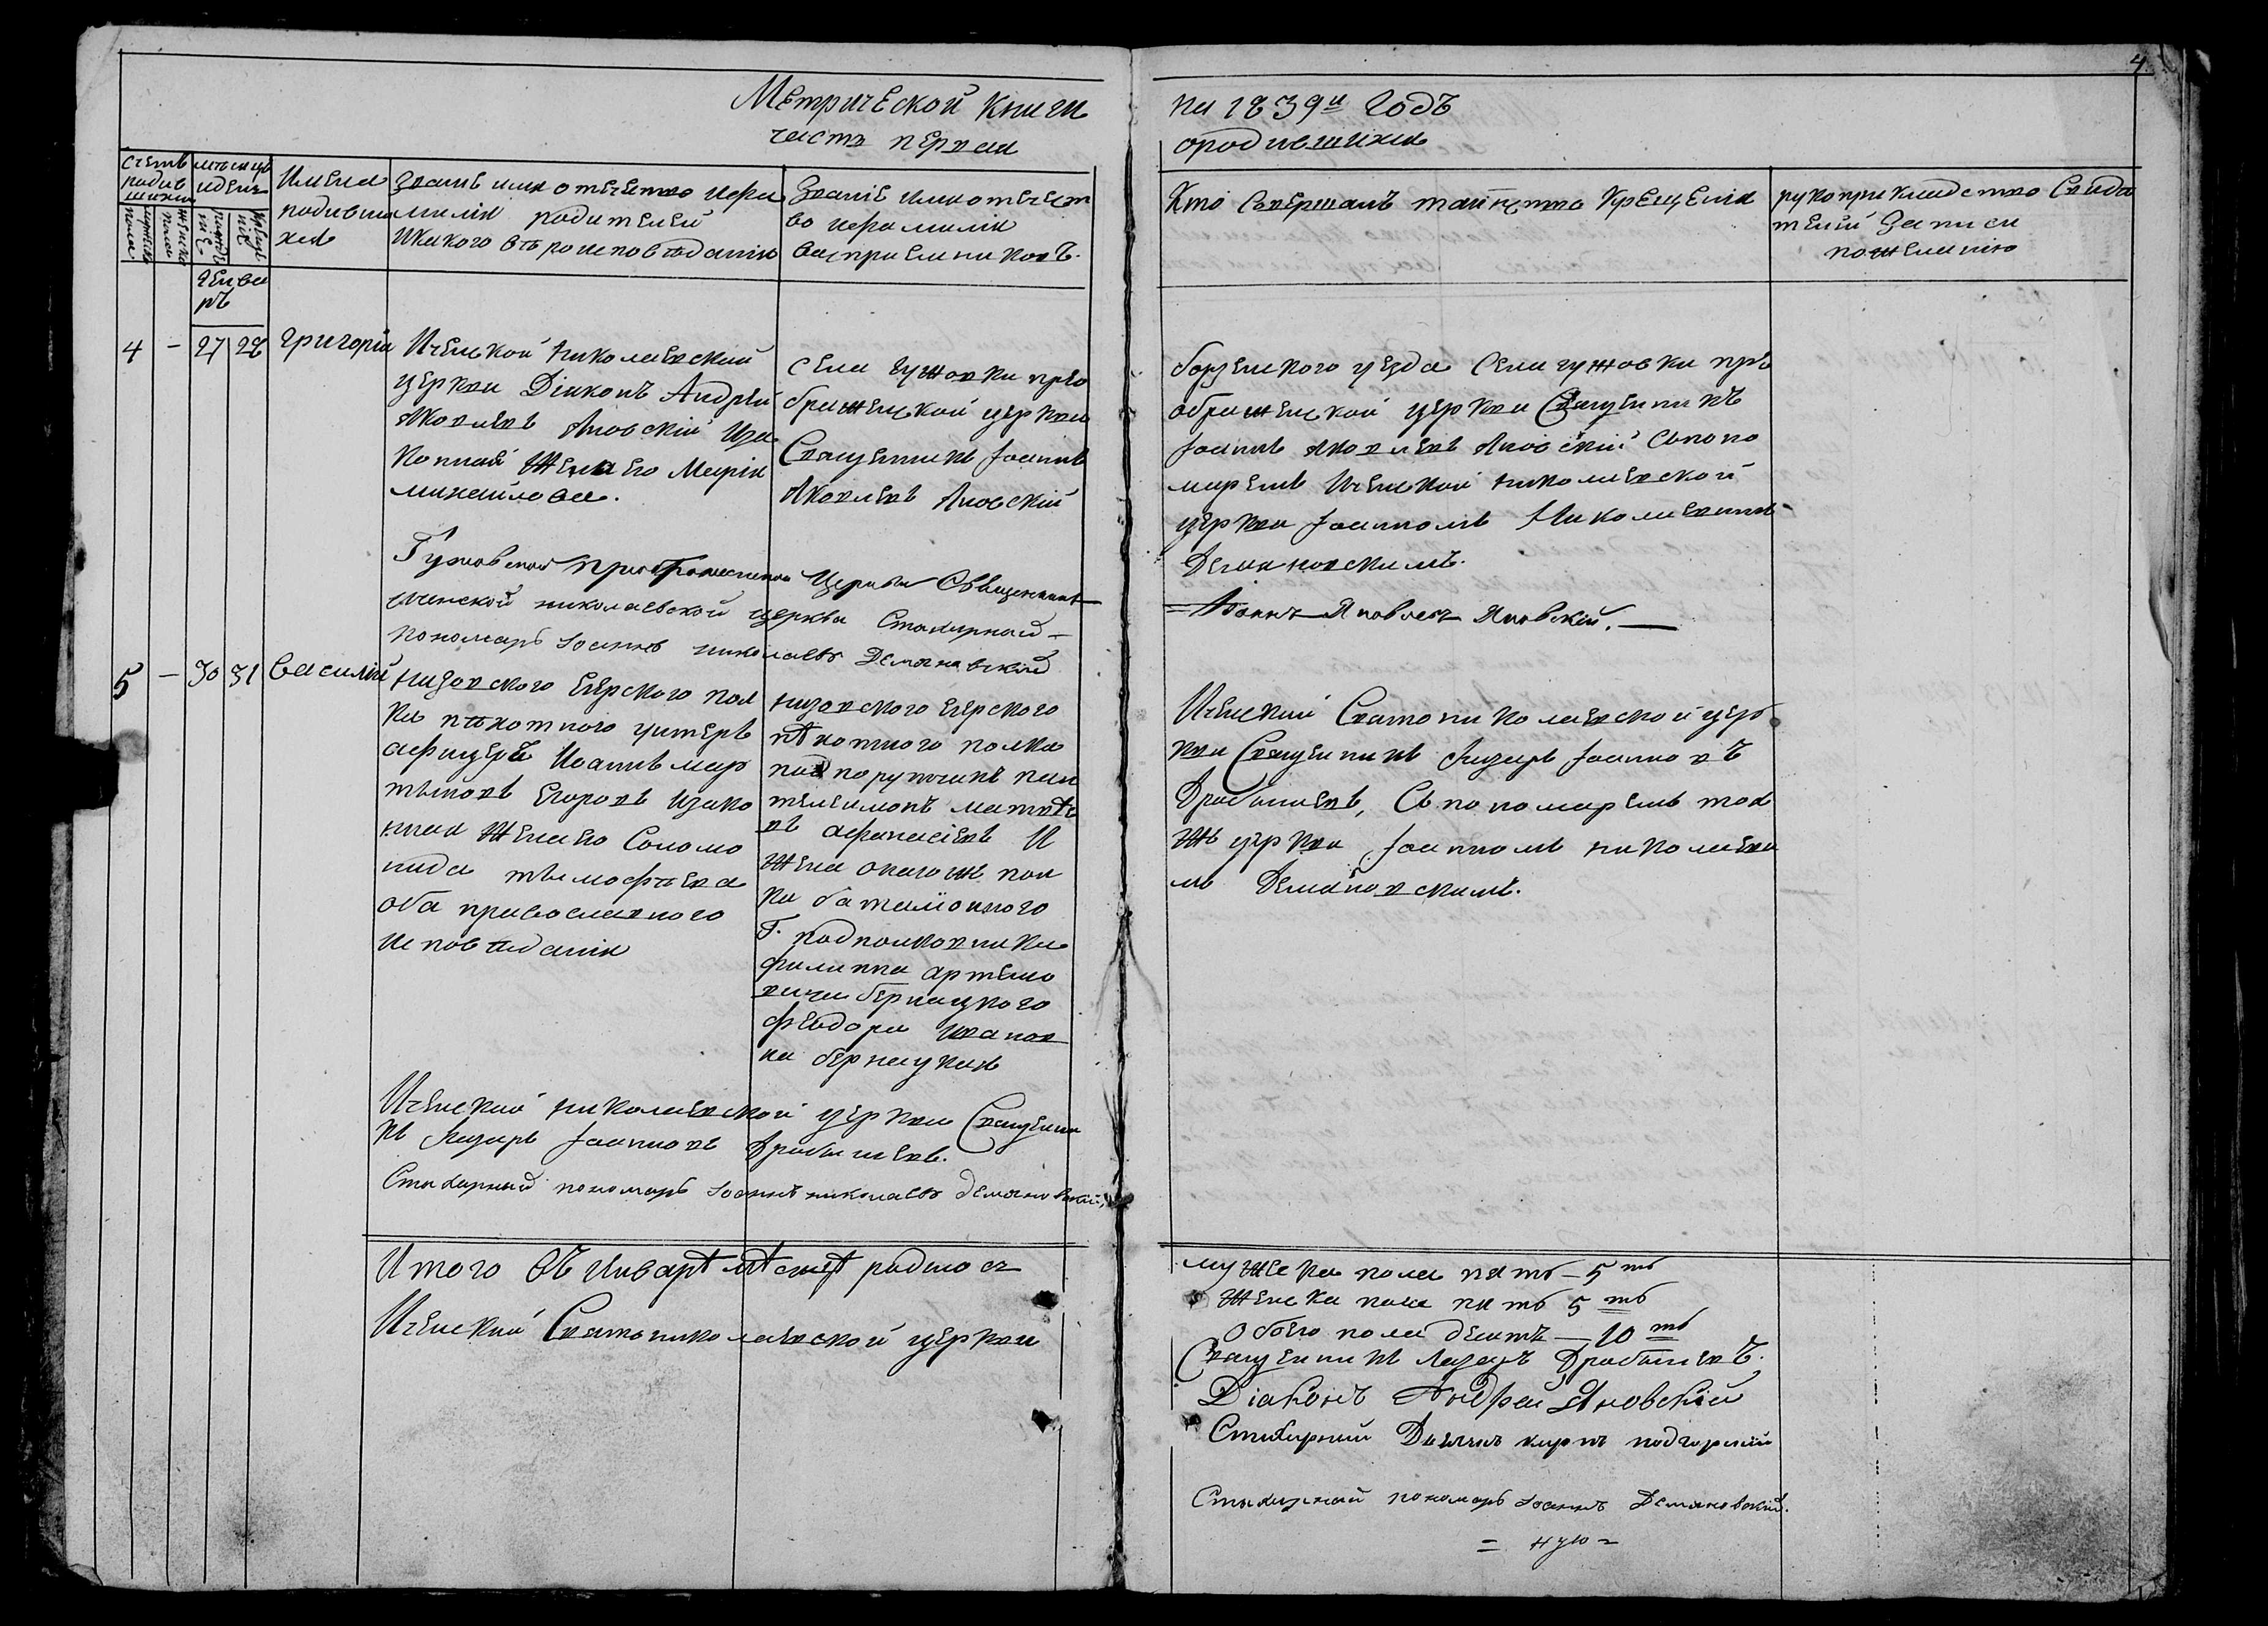 4
Метрической Книги
часть первая
на 1839й Годъ
ородившихся
Счетъ родив шихся
мужеска пола
женска пола
месяцъ идень
рожде ния
креще ния
Имена родивши хся
Званіе имя отечество ифа
милія родителей
Икакого вѣроисповѣданія
Званіе имя отечест
во ифамилія
воспріемниковъ.
Кто Совершалъ таинство Крещенія
рукоприкладство Свидѣ
телей Записи
пожеланію
Генва
ръ
4 - 27 28 Григорій
Иченской Николаевской
церкви Діяконъ Андрей
Яковлевъ Яновскій Иза
конная Жена его Марія
михайлова.
Села гужовки прео
браженской церкви
Священникъ Іоаннъ
Яковлевъ Яновскій
борзенского уезда Села гужовки пре
ображенской церкви Священникъ
Іоаннъ Яковлевъ Яновскій Спono
маремъ Иченской Николаевской
церкви Іоанномъ Николаевимъ
Демяновскимъ.
Гужовской Преображенской Церкви Священникъ
Іоаннъ Яковлевъ Яновскій.
иченской николаевской церкви Стихирный
пономарь Іоаннъ николаевъ Демяновский
5 - 30 31 Василій
Низовского Егерского пол
ка пѣхотного унтеръ
афицеръ Иоаннъ мар
тыновъ Егоровъ Изако
нная Жена его Соломо
нида тымофѣева
оба православного
исповѣданія
низовского егерского
пѣхотного полка
подпоручикъ пан
телеимонъ матвѣе
въ афанасіевъ И
Жена онагожъ пол
ка баталіонного
Г. подполковника
филиппа артемо
вича бернацкого
феодора иванов
на бернацкая
Иченский Святониколаевской цер
кви Священникъ Лазарь Іоанновъ
Дробышевъ, Съ пономаремъ тоя
жъ церкви Іоанномъ николаеви
мъ Демяновскимъ.
Иченский николаевской церкви Священни
къ Лазарь Іоанновъ Дробышевъ.
Стихирный пономарь Іоаннъ николаевъ демяновский,
Итого Въ Инварѣ мѣсяцѣ родилось
Иченский Святониколаевской церкви
мужеска пола пять — 5ть
Женска пола пять 5ть
Обоего пола десять — 10ть
Священникъ Лазарь Дробышевъ.
Діаконъ Андрей Яновскій
Стихирний Дьячокъ карпъ подгорний
Стихирный пономарь Іоаннъ Демяновский.